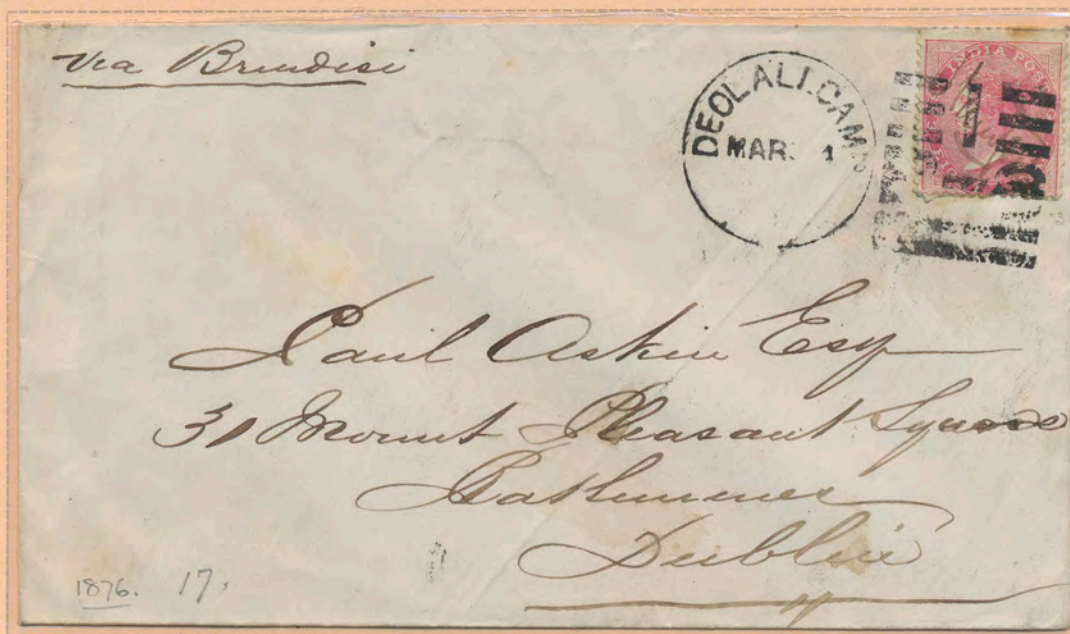 Via Brindisi
DEOLALI.CAMP
MAR. 1
INDIA POS
1
Paul Askin Esq
31 Mount Pleasant Square
Rathmines
Dublin
1876. 17.